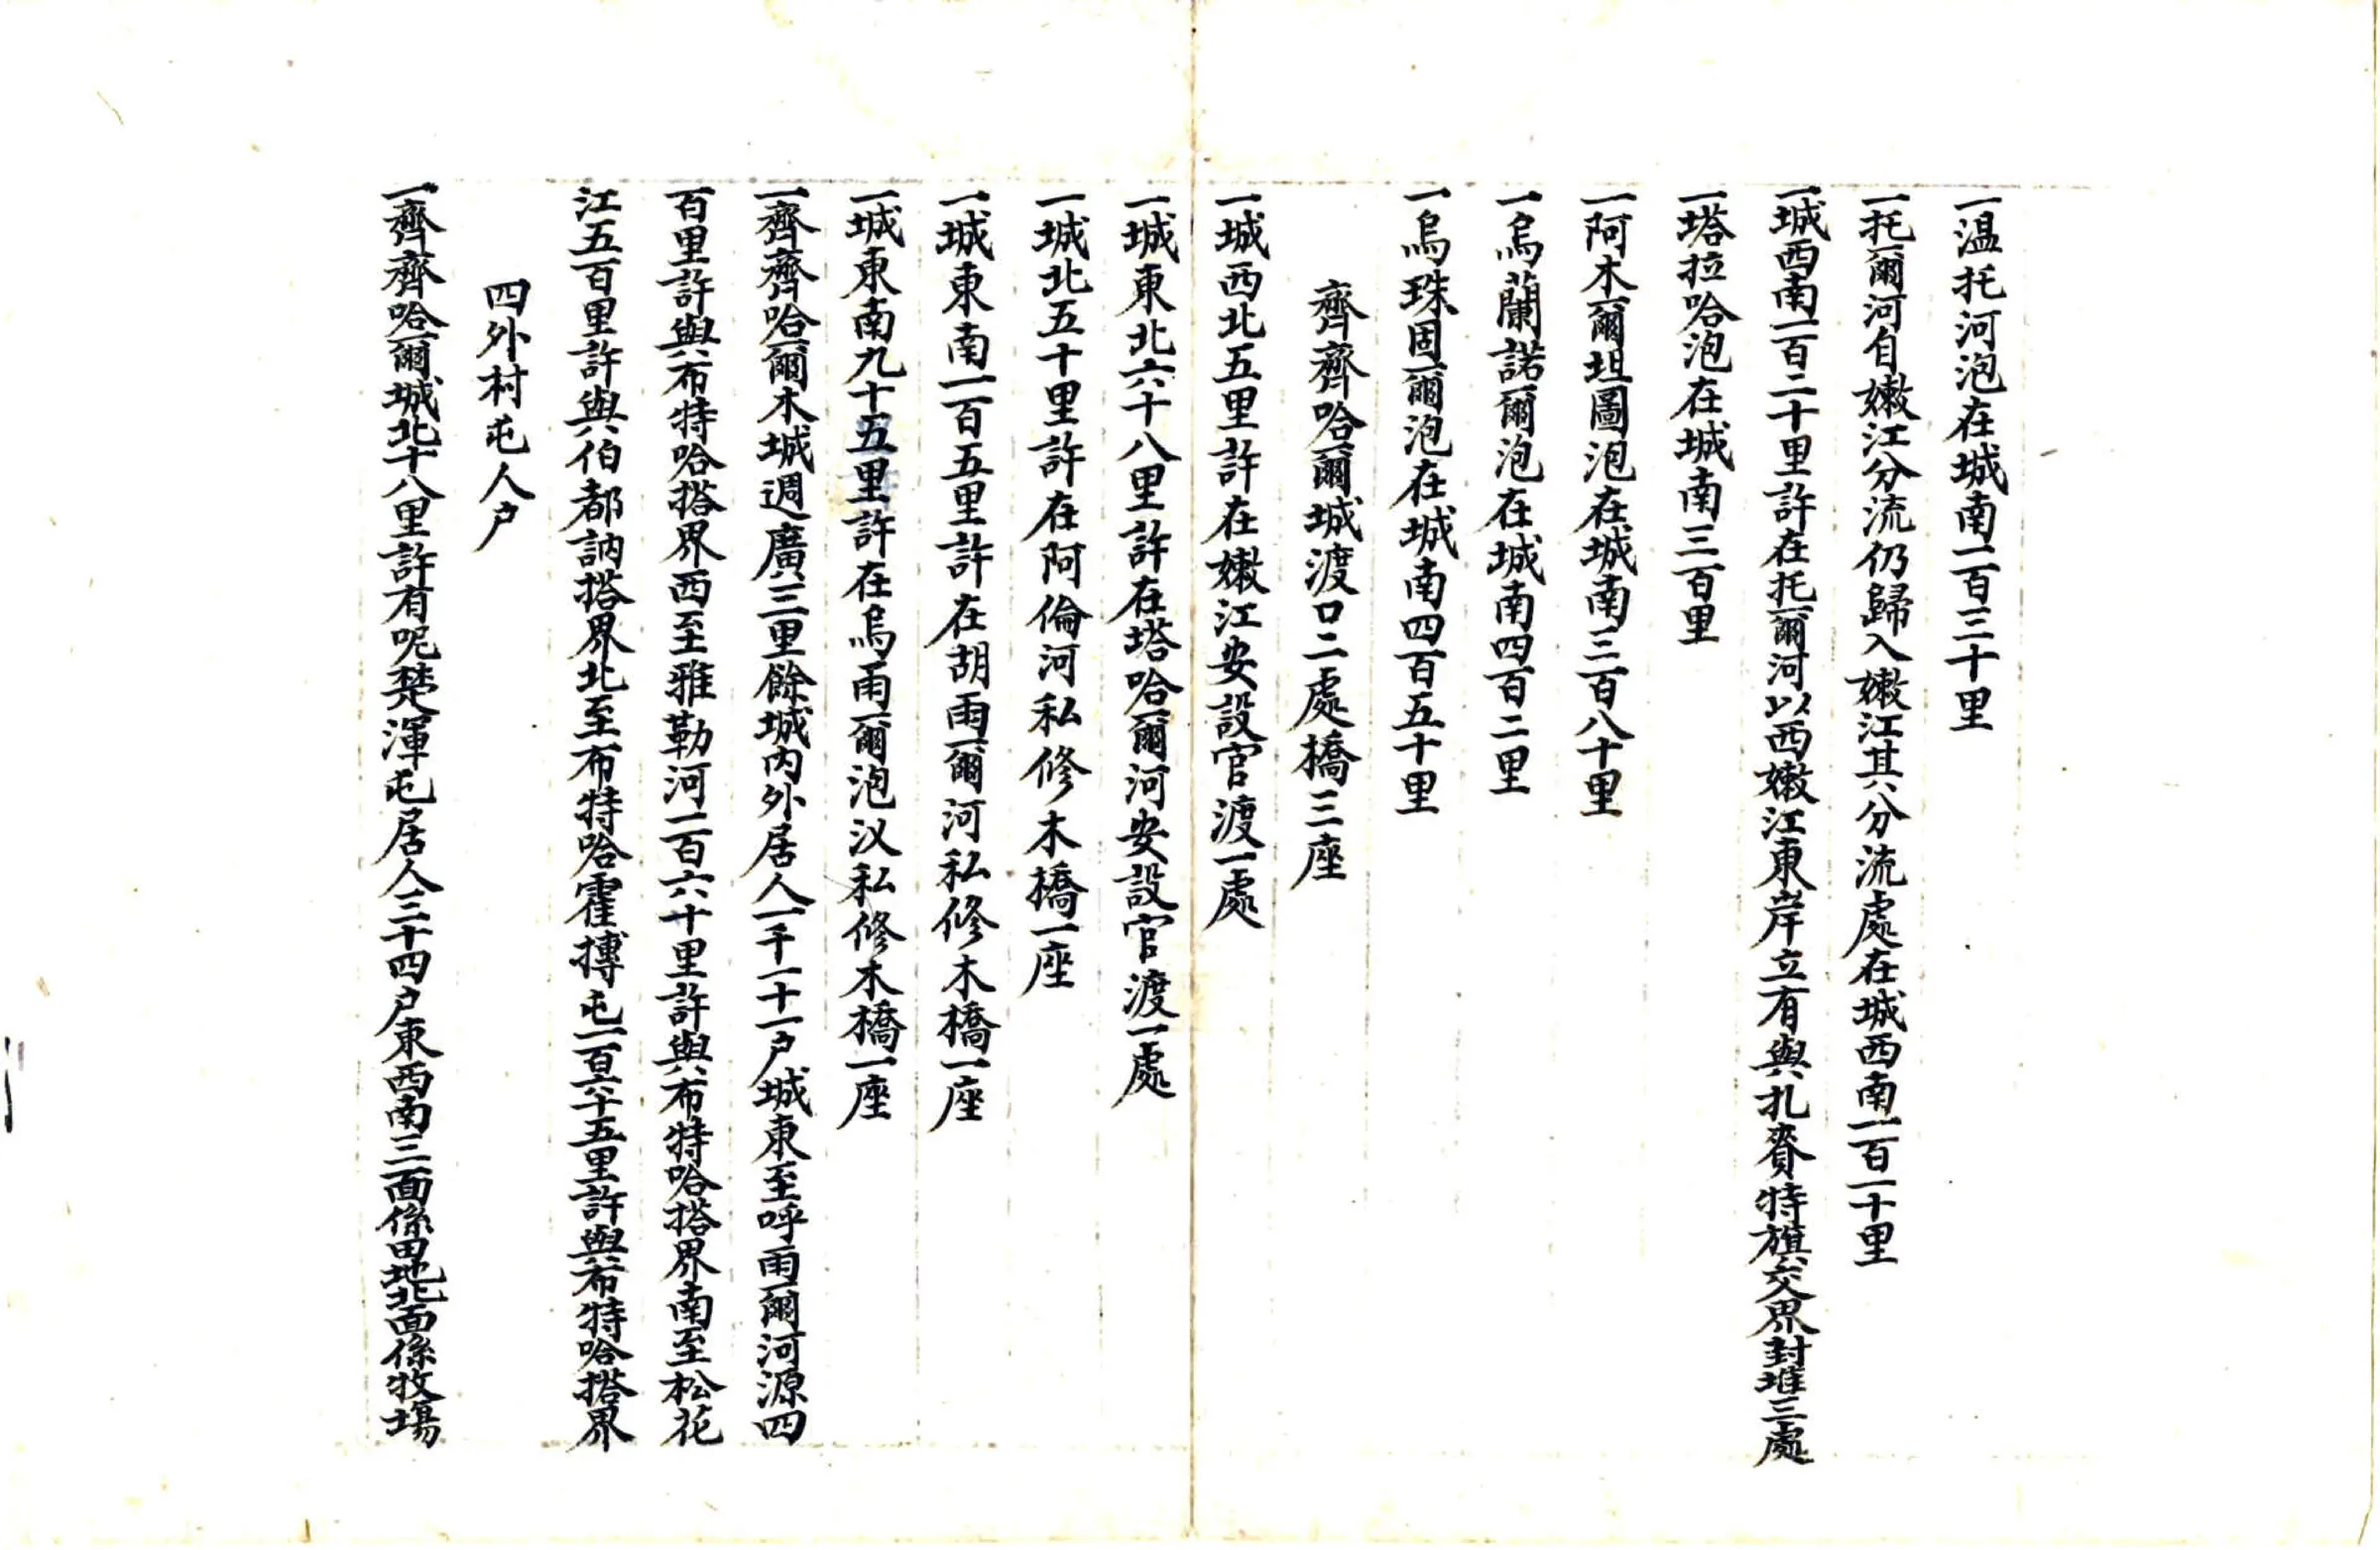 一溫托河泡在城南一百三十里
一托爾河自嫩江分流仍歸入嫩江其分流處在城西南一百一十里
一城西南一百二十里許在托爾河以西嫩江東岸立有與扎賚特旗交界封堆三處
一塔拉哈泡在城南三百里
一阿木爾坦圖泡在城南三百八十里
一烏蘭諾爾泡在城南四百二里
一烏珠固爾泡在城南四百五十里
齊齊哈爾城渡口二處橋三座
一城西北五里許在嫩江安設官渡一處
一城東北六十八里許在塔哈爾河安設官渡一處
一城北五十里許在阿倫河私修木橋一座
一城東南一百五里許在胡雨爾河私修木橋一座
一城東南九十五里許在烏雨爾泡汊私修木橋一座
一齊齊哈爾木城週廣三里餘城內外居人一千一十一户城東至呼雨爾河源四
百里許與布特哈搭界西至雅勒河二百六十里許與布特哈搭界南至松花
江五百里許與伯都訥搭界北至布特哈霍摶屯一百六十五里許與布特哈搭界
四外村屯人户
一齊齊哈爾城北十八里許有呢楚渾屯居人三十四户東西南三面係田地北面係牧場